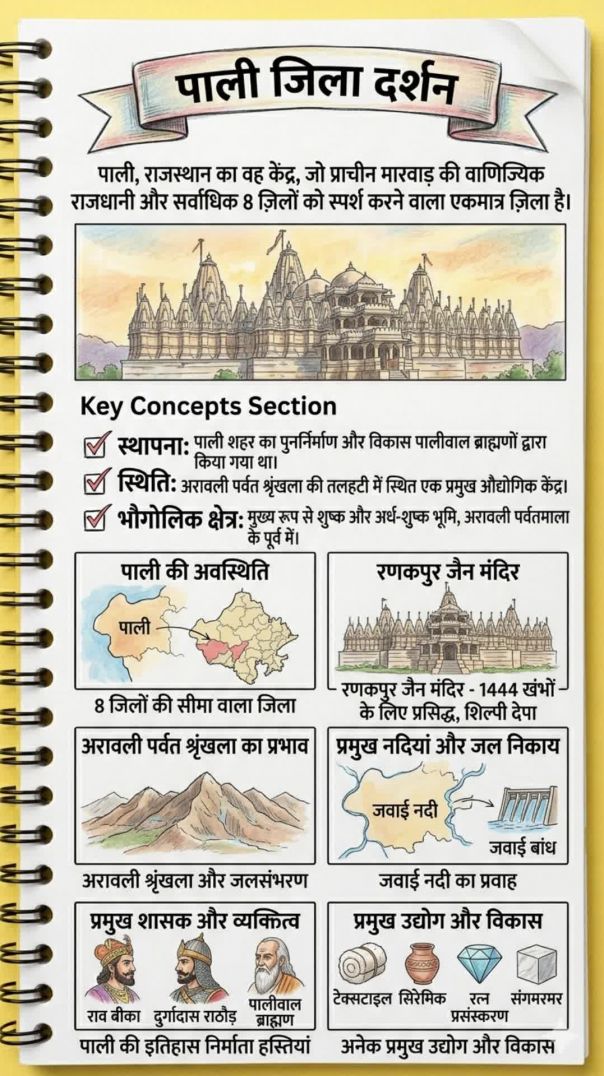 पाली जिला दर्शन
पाली, राजस्थान का वह केंद्र, जो प्राचीन मारवाड़ की वाणिज्यिक
राजधानी और सर्वाधिक 8 ज़िलों को स्पर्श करने वाला एकमात्र ज़िला है।
Key Concepts Section
स्थापना: पाली शहर का पुनर्निर्माण और विकास पालीवाल ब्राह्मणों द्वारा
किया गया था।
स्थिति: अरावली पर्वत श्रृंखला की तलहटी में स्थित एक प्रमुख औद्योगिक केंद्र।
भौगोलिक क्षेत्र: मुख्य रूप से शुष्क और अर्ध-शुष्क भूमि, अरावली पर्वतमाला
के पूर्व में।
पाली की अवस्थिति
पाली
8 जिलों की सीमा वाला जिला
रणकपुर जैन मंदिर
रणकपुर जैन मंदिर - 1444 खंभों
के लिए प्रसिद्ध, शिल्पी देपा
अरावली पर्वत श्रृंखला का प्रभाव
अरावली श्रृंखला और जलसंभरण
प्रमुख नदियां और जल निकाय
जवाई नदी
जवाई बांध
जवाई नदी का प्रवाह
प्रमुख शासक और व्यक्तित्व
राव बीका
दुर्गादास राठौड़
पालीवाल
ब्राह्मण
पाली की इतिहास निर्माता हस्तियां
प्रमुख उद्योग और विकास
टेक्सटाइल
सिरेमिक
रत्न
प्रसंस्करण
संगमरमर
अनेक प्रमुख उद्योग और विकास